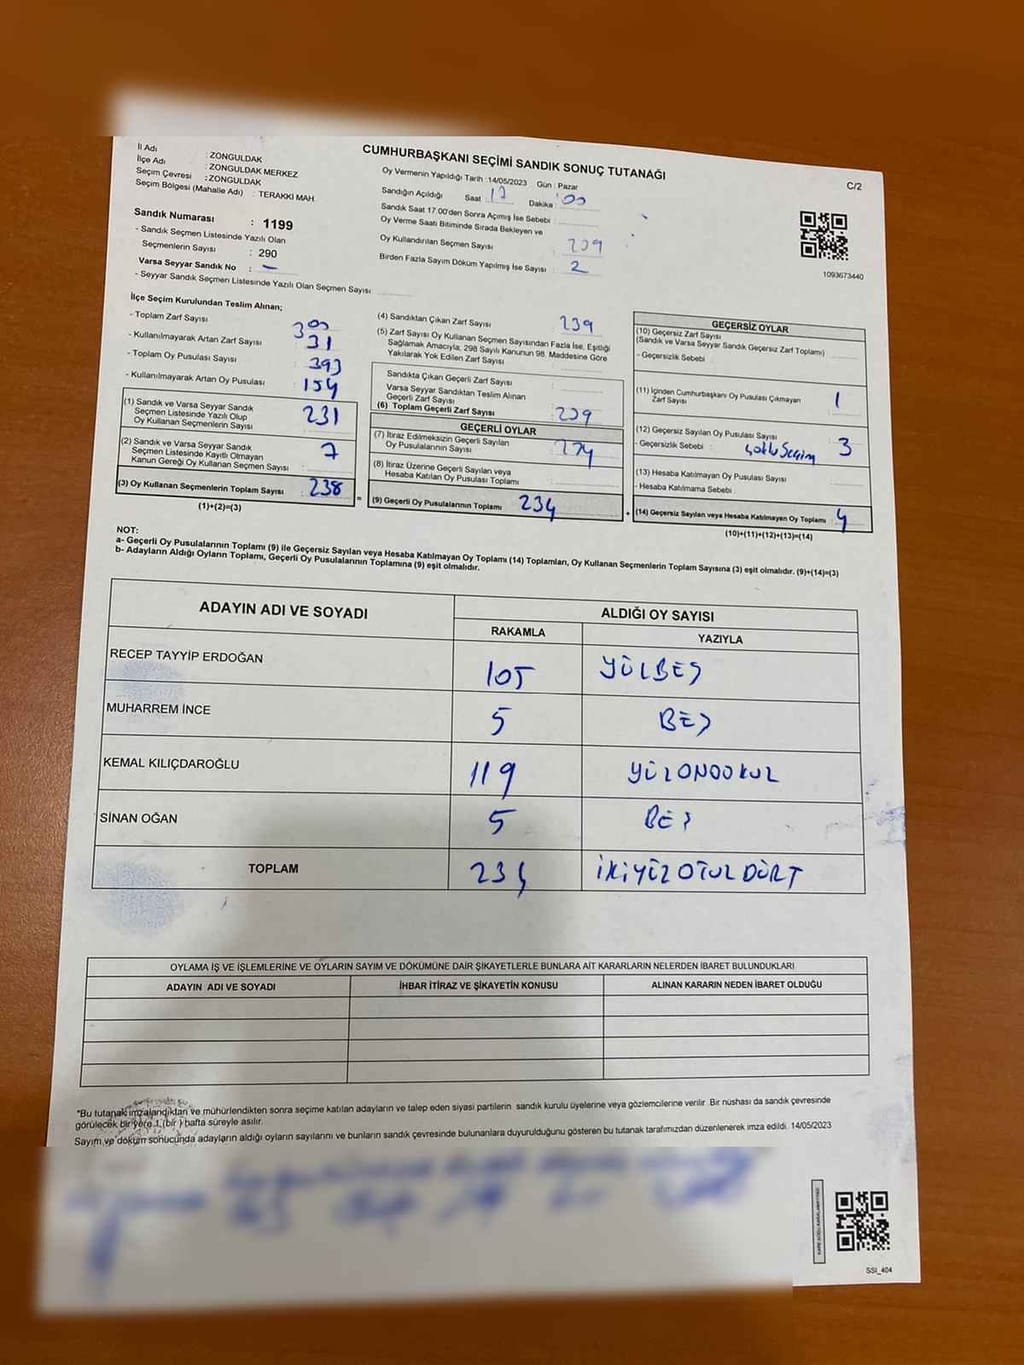 CUMHURBAŞKANI SEÇİMİ SANDIK SONUÇ TUTANAĞI
C/2
İl Adı : ZONGULDAK
İlçe Adı : ZONGULDAK MERKEZ
Seçim Çevresi : ZONGULDAK
Seçim Bölgesi (Mahalle Adı) : TERAKKI MAH
Sandık Numarası : 1199
- Sandık Seçmen Listesinde Yazılı Olan
Seçmenlerin Sayısı : 290
Varsa Seyyar Sandık No : -
- Seyyar Sandık Seçmen Listesinde Yazılı Olan Seçmen Sayısı
Oy Vermenin Yapıldığı Tarih : 14/05/2023 Gün : Pazar
Sandığın Açıldığı Saat 17 Dakika : 00
Sandık Saat 17.00'den Sonra Açımış İse Sebebi
Oy Verme Saati Bitiminde Sırada Bekleyen ve
Oy Kullandırılan Seçmen Sayısı 239
Birden Fazla Sayım Döküm Yapılmış İse Sayısı 2
1093673440
İlçe Seçim Kurulundan Teslim Alınan;
- Toplam Zarf Sayısı 300
- Kullanılmayarak Artan Zarf Sayısı 31
- Toplam Oy Pusulası Sayısı 393
- Kullanılmayarak Artan Oy Pusulası 154
(1) Sandık ve Varsa Seyyar Sandık
Seçmen Listesinde Yazılı Olup
Oy Kullanan Seçmenlerin Sayısı 231
(2) Sandık ve Varsa Seyyar Sandık
Seçmen Listesinde Kayıtlı Olmayan
Kanun Gereği Oy Kullanan Seçmen Sayısı 7
(3) Oy Kullanan Seçmenlerin Toplam Sayısı 238
(1)+(2)=(3)
(4) Sandıktan Çıkan Zarf Sayısı 239
(5) Zarf Sayısı Oy Kullanan Seçmen Sayısından Fazla İse, Eşitliği
Sağlamak Amacıyla, 298 Sayılı Kanunun 98. Maddesine Göre
Yakılarak Yok Edilen Zarf Sayısı
Sandıkta Çıkan Geçerli Zarf Sayısı
Varsa Seyyar Sandıktan Teslim Alınan
Geçerli Zarf Sayısı
(6) Toplam Geçerli Zarf Sayısı 239
GEÇERLİ OYLAR
(7) İtiraz Edilmeksizin Geçerli Sayılan
Oy Pusulalarının Sayısı 234
(8) İtiraz Üzerine Geçerli Sayılan veya
Hesaba Katılan Oy Pusulası Toplamı
(9) Geçerli Oy Pusulalarının Toplamı 234
GEÇERSİZ OYLAR
(10) Geçersiz Zarf Sayısı
(Sandık ve Varsa Seyyar Sandık Geçersiz Zarf Toplamı)
- Geçersizlik Sebebi
(11) İçinden Cumhurbaşkanı Oy Pusulası Çıkmayan
Zarf Sayısı 1
(12) Geçersiz Sayılan Oy Pusulası Sayısı 3
- Geçersizlik Sebebi : Çoklu Seçim
(13) Hesaba Katılmayan Oy Pusulası Sayısı
- Hesaba Katılmama Sebebi
(14) Geçersiz Sayılan veya Hesaba Katılmayan Oy Toplamı 4
(10)+(11)+(12)+(13)=(14)
NOT:
a- Geçerli Oy Pusulalarının Toplamı (9) ile Geçersiz Sayılan veya Hesaba Katılmayan Oy Toplamı (14) Toplamları, Oy Kullanan Seçmenlerin Toplam Sayısına (3) eşit olmalıdır. (9)+(14)=(3)
b- Adayların Aldığı Oyların Toplamı, Geçerli Oy Pusulalarının Toplamına (9) eşit olmalıdır.
ADAYIN ADI VE SOYADI
ALDIĞI OY SAYISI
RAKAMLA YAZIYLA
RECEP TAYYİP ERDOĞAN 105 YÜZBEŞ
MUHARREM İNCE 5 BEŞ
KEMAL KILIÇDAROĞLU 119 YÜZONDOKUZ
SİNAN OĞAN 5 BEŞ
TOPLAM 234 İKİYÜZOTUZDÖRT
OYLAMA İŞ VE İŞLEMLERİNE VE OYLARIN SAYIM VE DÖKÜMÜNE DAİR ŞİKAYETLERLE BUNLARA AİT KARARLARIN NELERDEN İBARET BULUNDUKLARI
ADAYIN ADI VE SOYADI İHBAR İTİRAZ VE ŞİKAYETİN KONUSU ALINAN KARARIN NEDEN İBARET OLDUĞU
*Bu tutanak imzalandıktan ve mühürlendikten sonra seçime katılan adayların ve talep eden siyasi partilerin sandık kurulu üyelerine veya gözlemcilerine verilir .Bir nüshası da sandık çevresinde
görülecek bir yere 1 (bir ) hafta süreyle asılır.
Sayım ve döküm sonucunda adayların aldığı oyların sayılarını ve bunların sandık çevresinde bulunanlara duyurulduğunu gösteren bu tutanak tarafımızdan düzenlenerek imza edildi. 14/05/2023
SSI_404